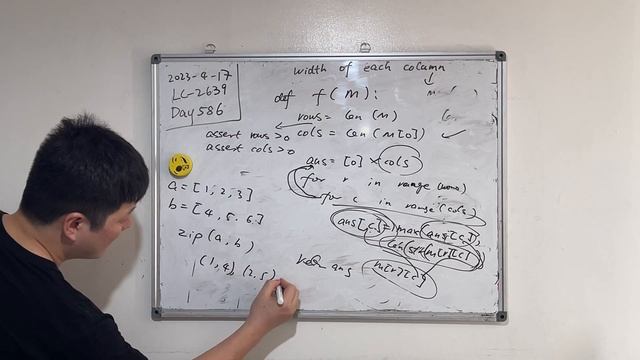 2023-4-17
LC-2639
Day 586
width of each column
def f(m):
rows = len(M)
cols = len(M[0])
assert rows>0
assert cols>0
ans = [0] × cols
for r in range(rows)
for c in range(cols)
ans[c] = max(ans[c],
len(str(m[r][c]
m[r][c]
ans
a = [1, 2, 3]
b = [4, 5, 6]
zip(a, b)
(1, 4) (2, 5)